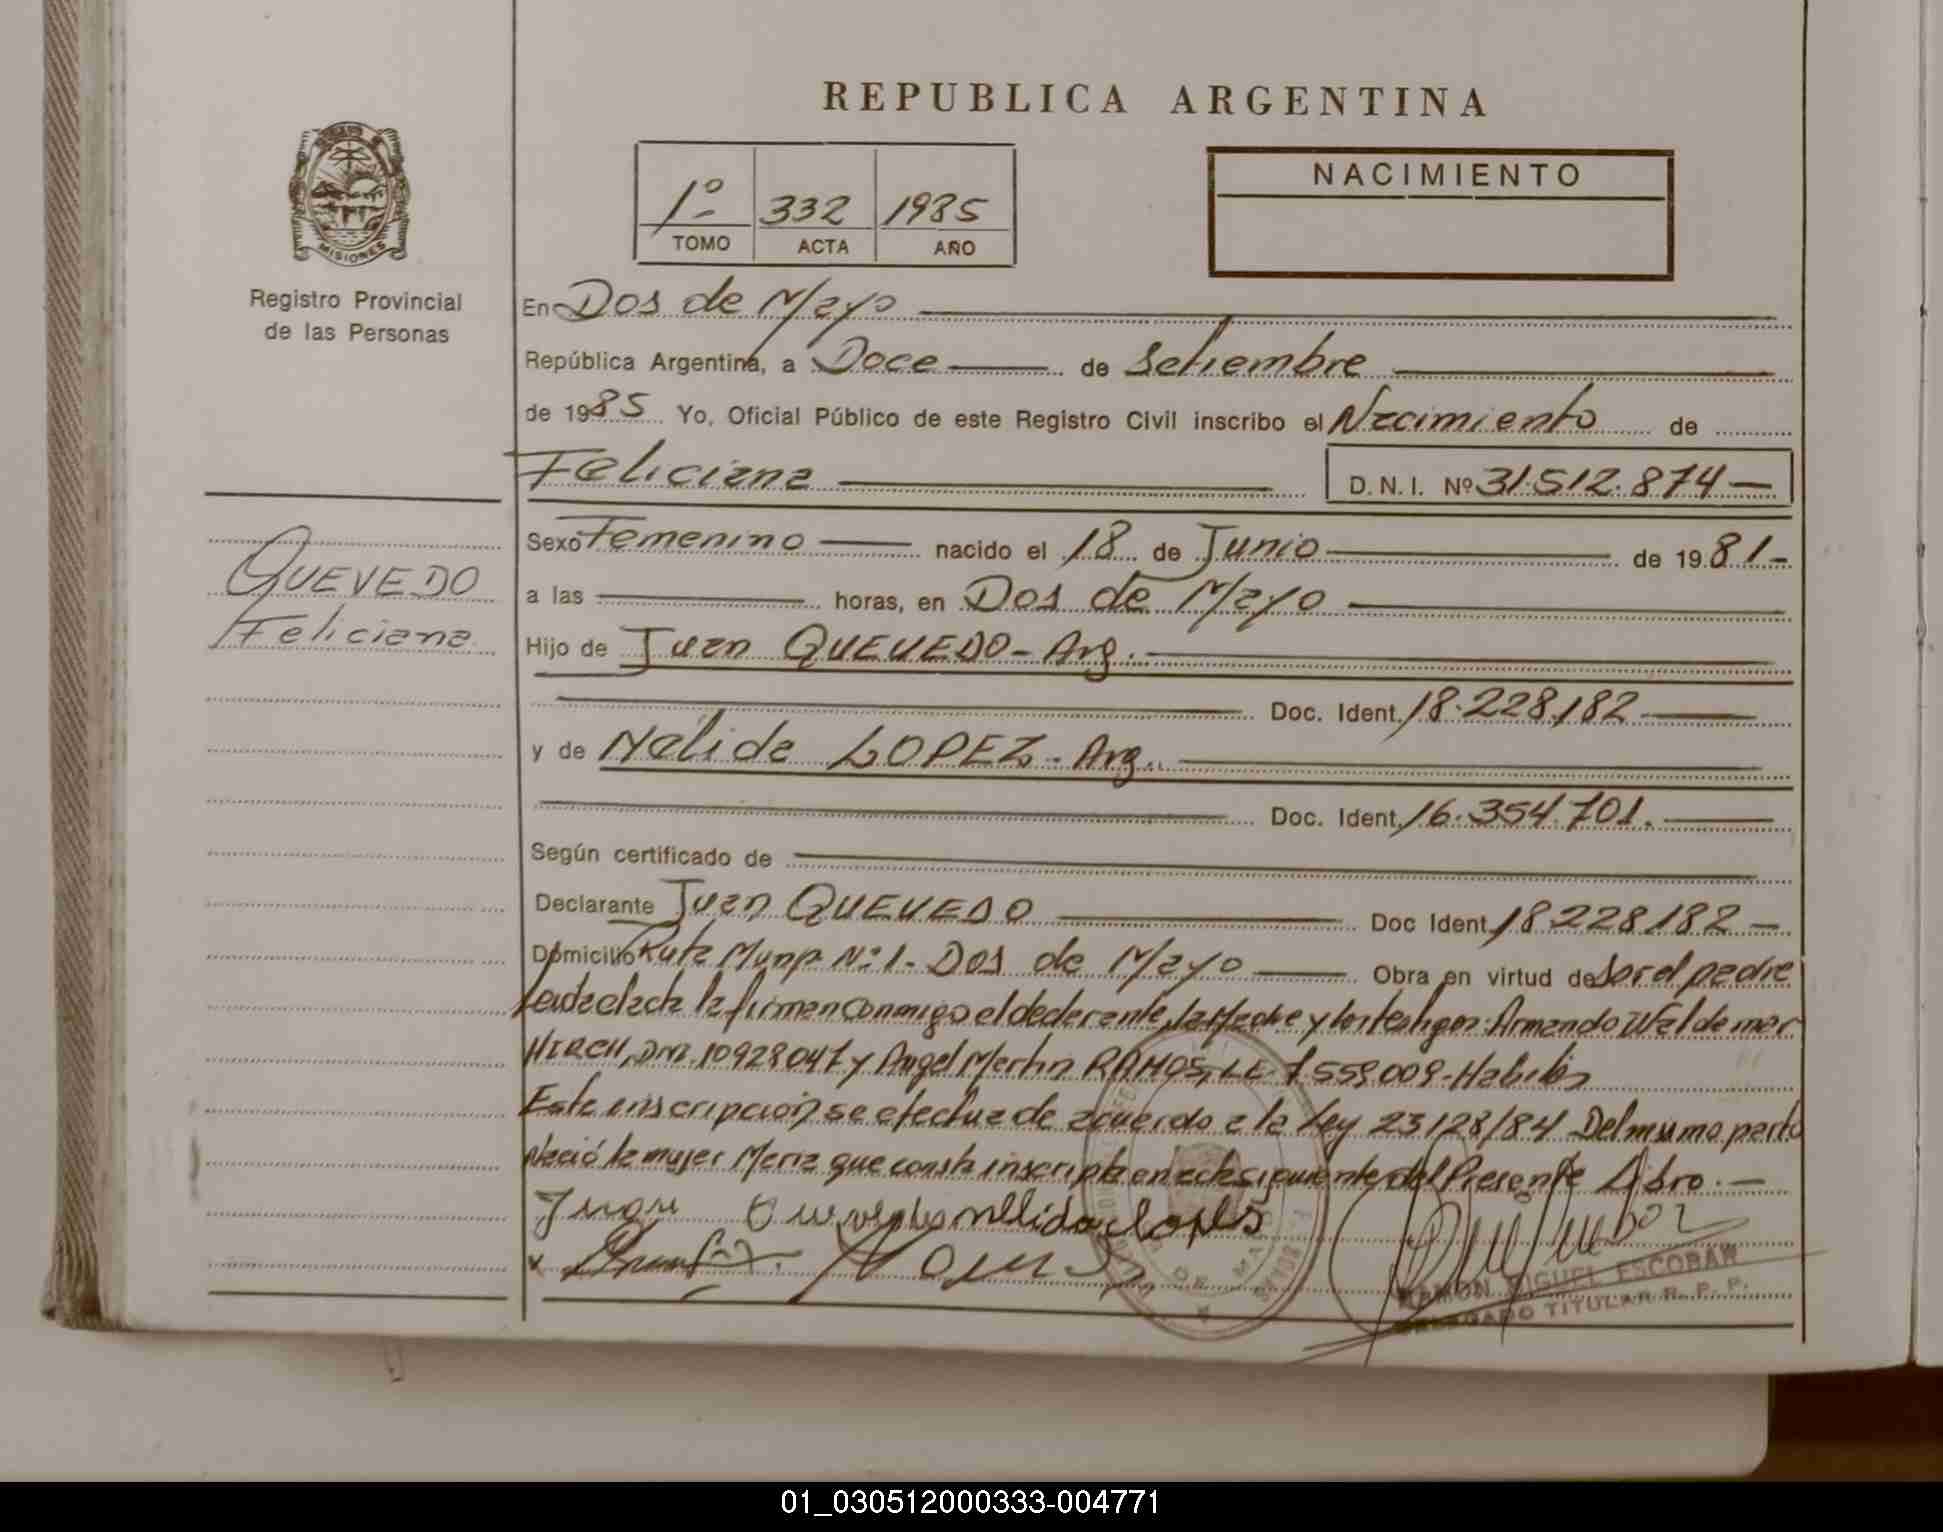 REPUBLICA ARGENTINA
1º 332 1985
TOMO ACTA AÑO
NACIMIENTO
MISIONES
Registro Provincial
de las Personas
QUEVEDO
Feliciana
En Dos de Mayo
República Argentina, a Doce de Setiembre
de 1985 Yo, Oficial Público de este Registro Civil inscribo el Nacimiento de
Feliciana D.N.I. Nº 31.512.874
Sexo Femenino nacido el 18 de Junio de 1981
a las horas, en Dos de Mayo
Hijo de Juan QUEVEDO - Arg.
Doc. Ident. 18.228.182
y de Nélida LOPEZ - Arg.
Doc. Ident. 16.354.701.
Según certificado de
Declarante Juan QUEVEDO Doc Ident. 18.228.182
Domicilio Ruta Munp. Nº 1 - Dos de Mayo Obra en virtud de Ser el padre
Leida el acta la firman conmigo el declarante, la Madre y los testigos: Armando Waldemar
HIRCH, DNI. 10928047 y Angel Martin RAMOS, LE. 7.559.009 - Habiles
Esta inscripción se efectua de acuerdo a la Ley 23128/84 Del mismo parto
Nació la mujer Maria que consta inscripta en acta siguiente del Presente Libro.
Juan Quevedo nellida lopes
RAMON MIGUEL ESCOBAR
DELEGADO TITULAR R. P. P.
01_030512000333-004771